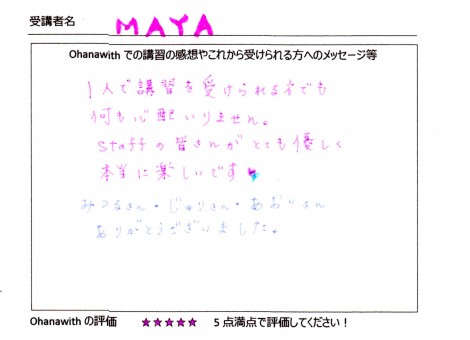 受講者名 MAYA
Ohanawith での講習の感想やこれから受けられる方へのメッセージ等
1人で講習を受けられる方でも
何も心配いりません。
staffの皆さんがとても優しく
本当に楽しいです♥
みつるさん・じゅりさん・あおいさん
ありがとうございました。
Ohanawith の評価 ★★★★★ 5点満点で評価してください！